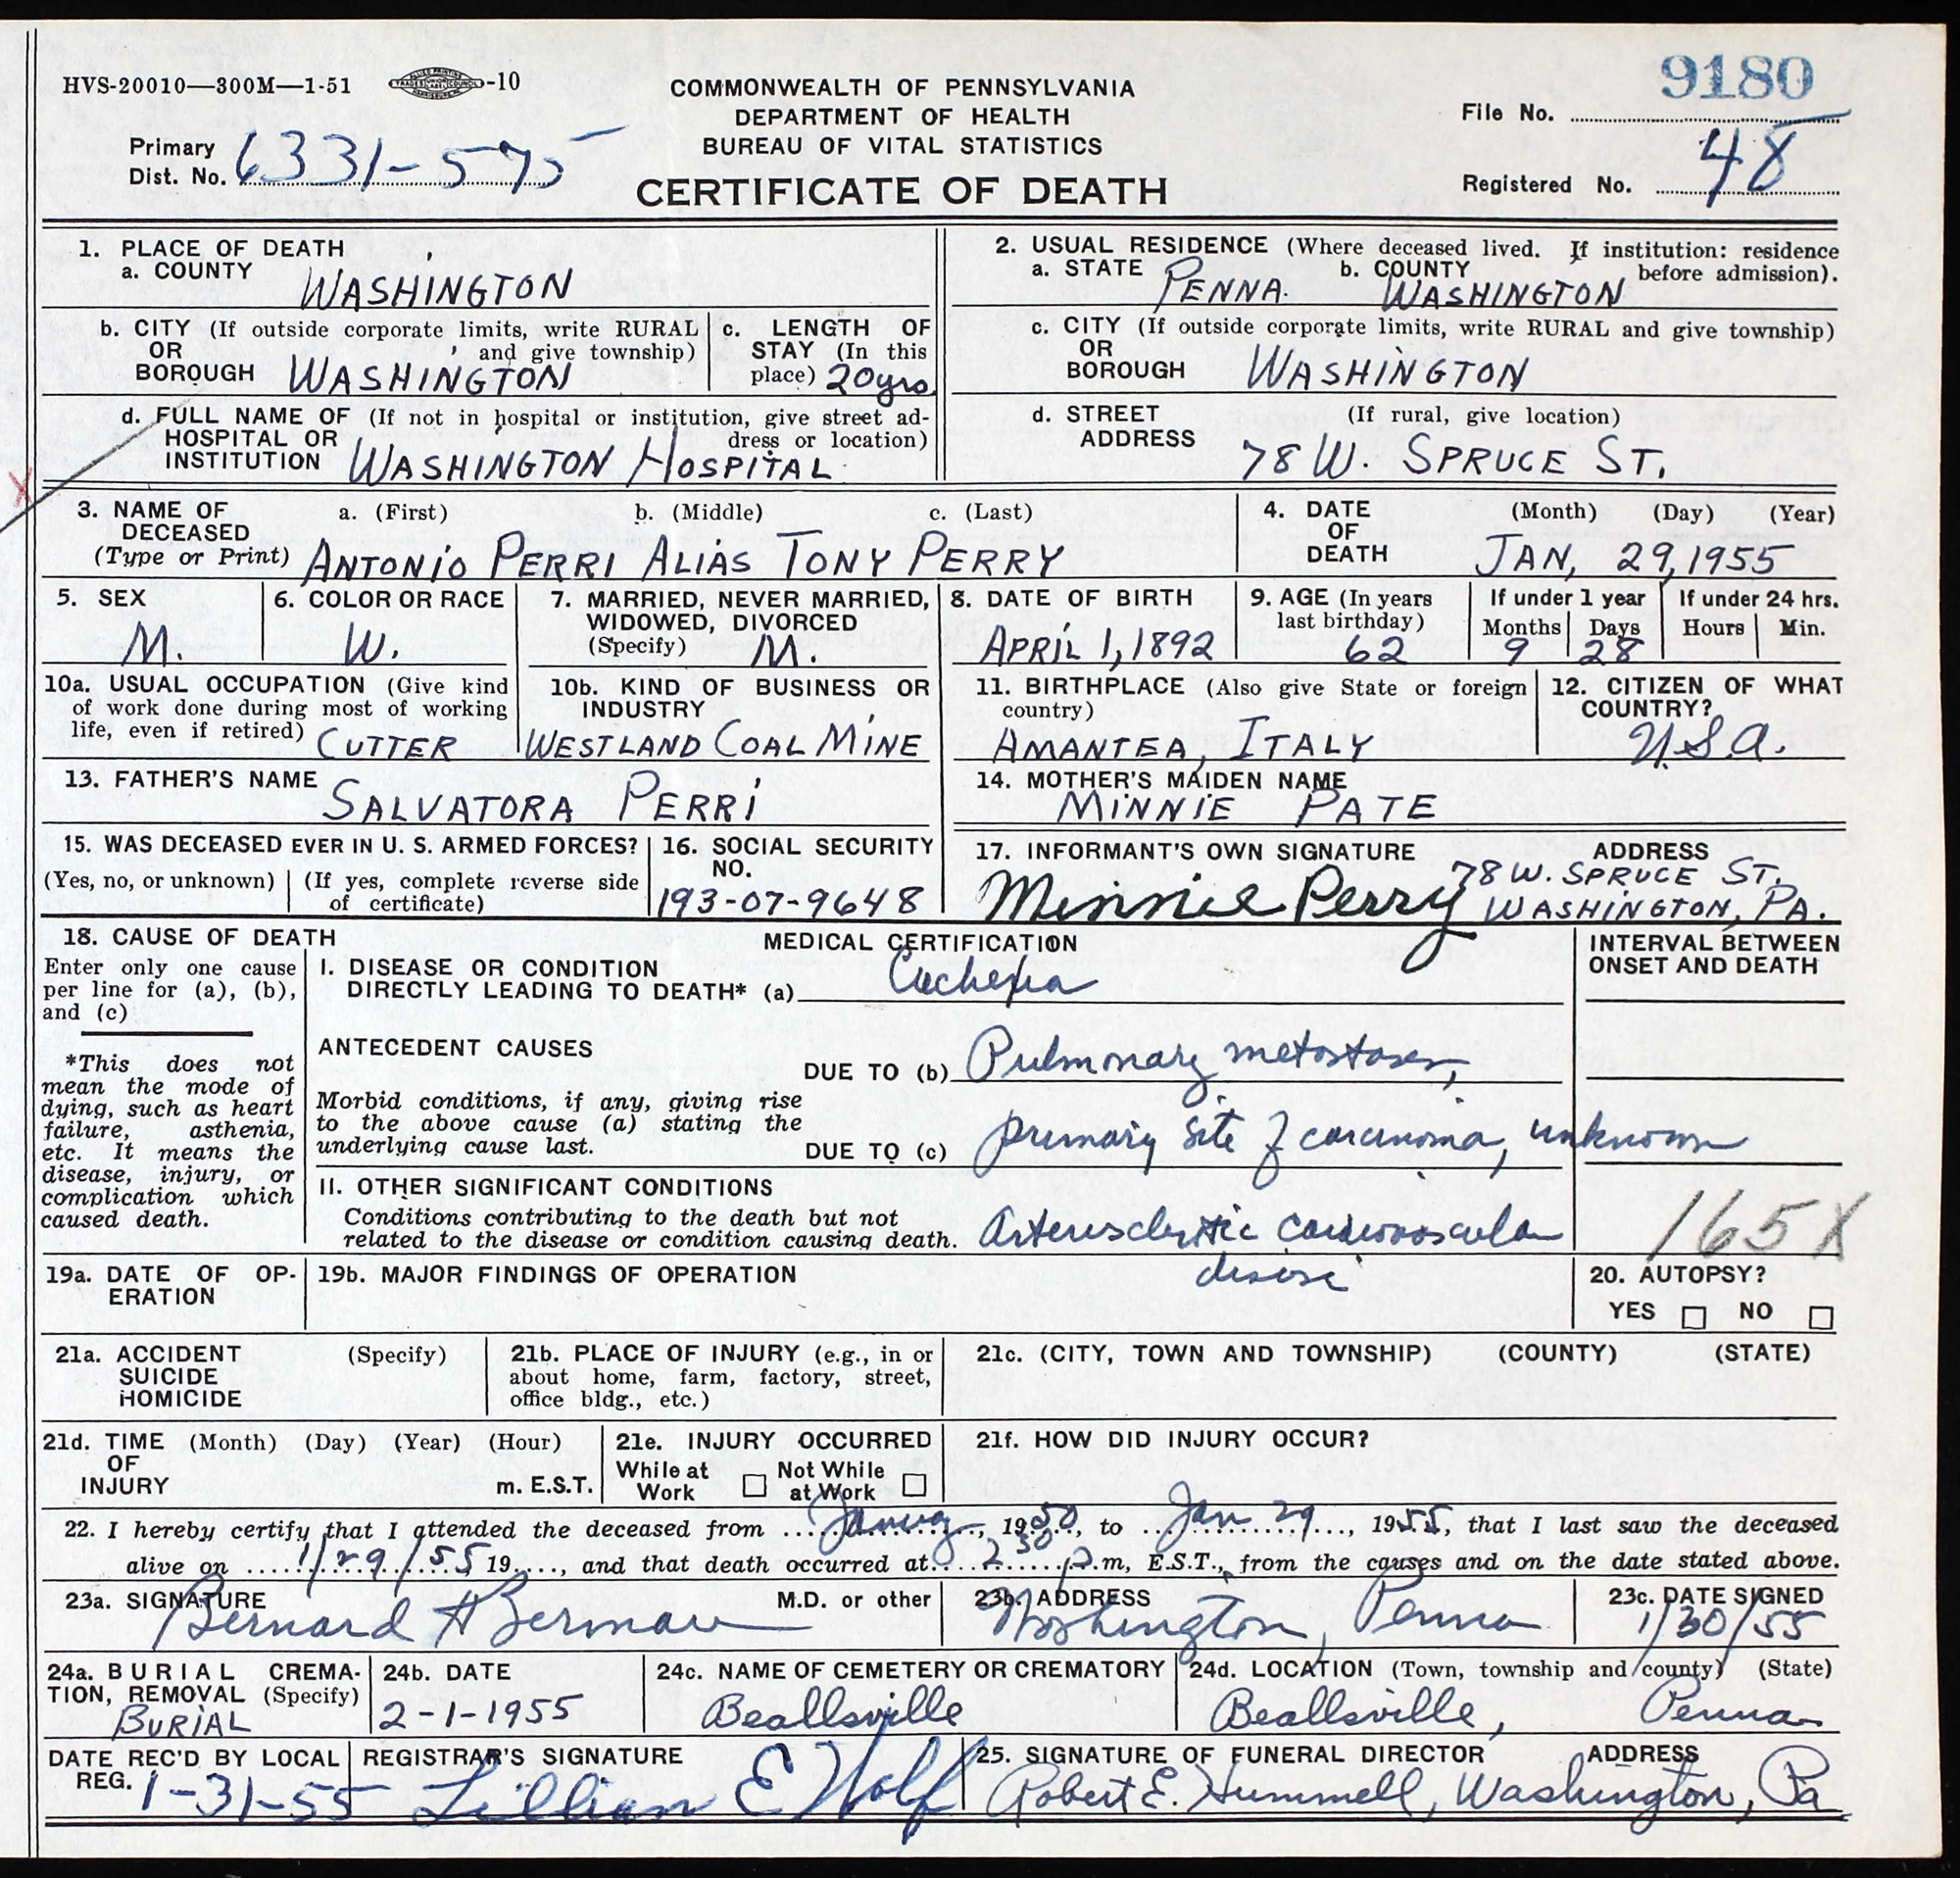 HVS-20010—300M—1-51 -10
COMMONWEALTH OF PENNSYLVANIA
DEPARTMENT OF HEALTH
BUREAU OF VITAL STATISTICS
CERTIFICATE OF DEATH
File No. 9180
Primary Dist. No. 6331-575
Registered No. 48
1. PLACE OF DEATH
a. COUNTY WASHINGTON
b. CITY (If outside corporate limits, write RURAL
OR and give township)
BOROUGH WASHINGTON
c. LENGTH OF
STAY (In this
place) 20 yrs.
d. FULL NAME OF (If not in hospital or institution, give street ad-
HOSPITAL OR dress or location)
INSTITUTION WASHINGTON HOSPITAL
2. USUAL RESIDENCE (Where deceased lived. If institution: residence
before admission).
a. STATE PENNA. b. COUNTY WASHINGTON
c. CITY (If outside corporate limits, write RURAL and give township)
OR
BOROUGH WASHINGTON
d. STREET (If rural, give location)
ADDRESS 78 W. SPRUCE ST.
3. NAME OF a. (First) b. (Middle) c. (Last)
DECEASED
(Type or Print) ANTONIO PERRI ALIAS TONY PERRY
4. DATE (Month) (Day) (Year)
OF
DEATH JAN, 29, 1955
5. SEX M.
6. COLOR OR RACE W.
7. MARRIED, NEVER MARRIED,
WIDOWED, DIVORCED
(Specify) M.
8. DATE OF BIRTH
APRIL 1, 1892
9. AGE (In years
last birthday) 62
If under 1 year
Months 9 Days 28
If under 24 hrs.
Hours Min.
10a. USUAL OCCUPATION (Give kind
of work done during most of working
life, even if retired) CUTTER
10b. KIND OF BUSINESS OR
INDUSTRY
WESTLAND COAL MINE
11. BIRTHPLACE (Also give State or foreign
country)
AMANTEA, ITALY
12. CITIZEN OF WHAT
COUNTRY?
U.S.A.
13. FATHER'S NAME
SALVATORA PERRI
14. MOTHER'S MAIDEN NAME
MINNIE PATE
15. WAS DECEASED EVER IN U. S. ARMED FORCES?
(Yes, no, or unknown) (If yes, complete reverse side
of certificate)
16. SOCIAL SECURITY
NO.
193-07-9648
17. INFORMANT'S OWN SIGNATURE ADDRESS
Minnie Perry 78 W. SPRUCE ST.
WASHINGTON, PA.
18. CAUSE OF DEATH
Enter only one cause
per line for (a), (b),
and (c)
*This does not
mean the mode of
dying, such as heart
failure, asthenia,
etc. It means the
disease, injury, or
complication which
caused death.
MEDICAL CERTIFICATION
I. DISEASE OR CONDITION
DIRECTLY LEADING TO DEATH* (a) Cachexia
ANTECEDENT CAUSES
DUE TO (b) Pulmonary metastases,
Morbid conditions, if any, giving rise
to the above cause (a) stating the
underlying cause last.
DUE TO (c) primary site of carcinoma, unknown
II. OTHER SIGNIFICANT CONDITIONS
Conditions contributing to the death but not
related to the disease or condition causing death.
Arteriosclerotic cardiovascular
disease
INTERVAL BETWEEN
ONSET AND DEATH
165X
19a. DATE OF OP-
ERATION
19b. MAJOR FINDINGS OF OPERATION
20. AUTOPSY?
YES NO
21a. ACCIDENT (Specify)
SUICIDE
HOMICIDE
21b. PLACE OF INJURY (e.g., in or
about home, farm, factory, street,
office bldg., etc.)
21c. (CITY, TOWN AND TOWNSHIP) (COUNTY) (STATE)
21d. TIME (Month) (Day) (Year) (Hour)
OF
INJURY m. E.S.T.
21e. INJURY OCCURRED
While at Work Not While at Work
21f. HOW DID INJURY OCCUR?
22. I hereby certify that I attended the deceased from January, 1950, to Jan 29, 1955, that I last saw the deceased
alive on 1/29/55 19...., and that death occurred at 2 30 P.m, E.S.T., from the causes and on the date stated above.
23a. SIGNATURE M.D. or other
Bernard H Berman
23b. ADDRESS
Washington, Penna
23c. DATE SIGNED
1/30/55
24a. BURIAL CREMA-
TION, REMOVAL (Specify)
BURIAL
24b. DATE
2-1-1955
24c. NAME OF CEMETERY OR CREMATORY
Beallsville
24d. LOCATION (Town, township and county) (State)
Beallsville, Penna
DATE REC'D BY LOCAL
REG. 1-31-55
REGISTRAR'S SIGNATURE
Lillian E Wolf
25. SIGNATURE OF FUNERAL DIRECTOR ADDRESS
Robert E. Hummell, Washington, Pa